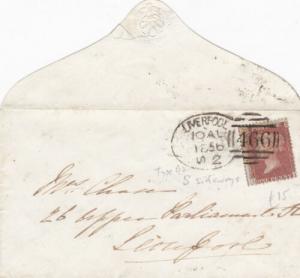 LIVERPOOL
10 AU
1856
S 2
466
S Sideways
£15
Mrs Chase
26 Upper Parliament St
Liverpool